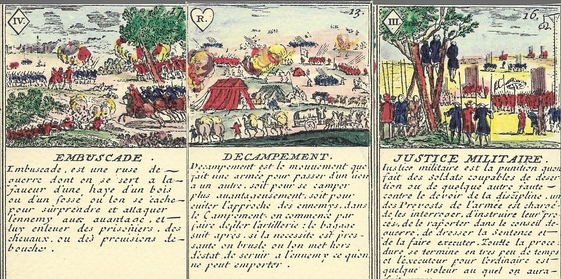 IV.
17
EMBUSCADE.
Embuscade, est une ruse de
guerre dont on se sert à la
faueur d'une haye d'un bois
ou d'un fossé ou lon se cache
pour surprendre et attaquer
l'ennemy auec auantage, et
luy enleuer des prisoniers, des
cheuaux, ou des prouisions de
bouches.
R.
13.
DECAMPEMENT.
Decampement est le mouuement que
fait une armée pour passer d'un lieu
a un autre, soit pour se camper
plus auantageusement, soit pour
euiter l'aproche des ennemys, dans
le Campement on commence par
faire defiler l'artillerie: le bagage
suit après, si la necessite est pres-
sante on brusle ou lon met hors
d'estat de seruir a l'ennemy ce qu'on
ne peut emporter.
III.
16,
JUSTICE MILITAIRE.
Justice militaire est la punition quon
fait des soldats coupables de deser-
tion ou de quelque autre faute
contre le devoir de la discipline, un
des Prevosts de l'armée est chargé
de les interroger, d'instruire leur pro-
cés, de le raporter dans le conseil de-
guerre, de dresser la Sentence et
de la faire executer. Toutte la proce-
dure se termine en tres peu de temps
et l'executeur pour l'ordinaire est
quelque voleur au quel on aura